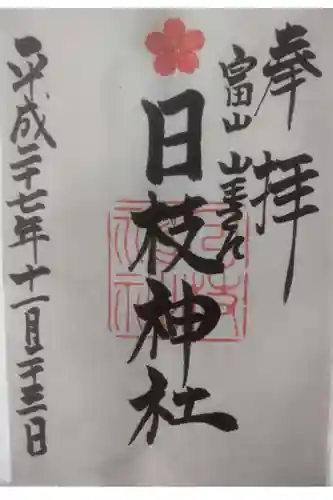 奉拝
富山 山王さん
日枝神社
平成二十七年十一月二十三日